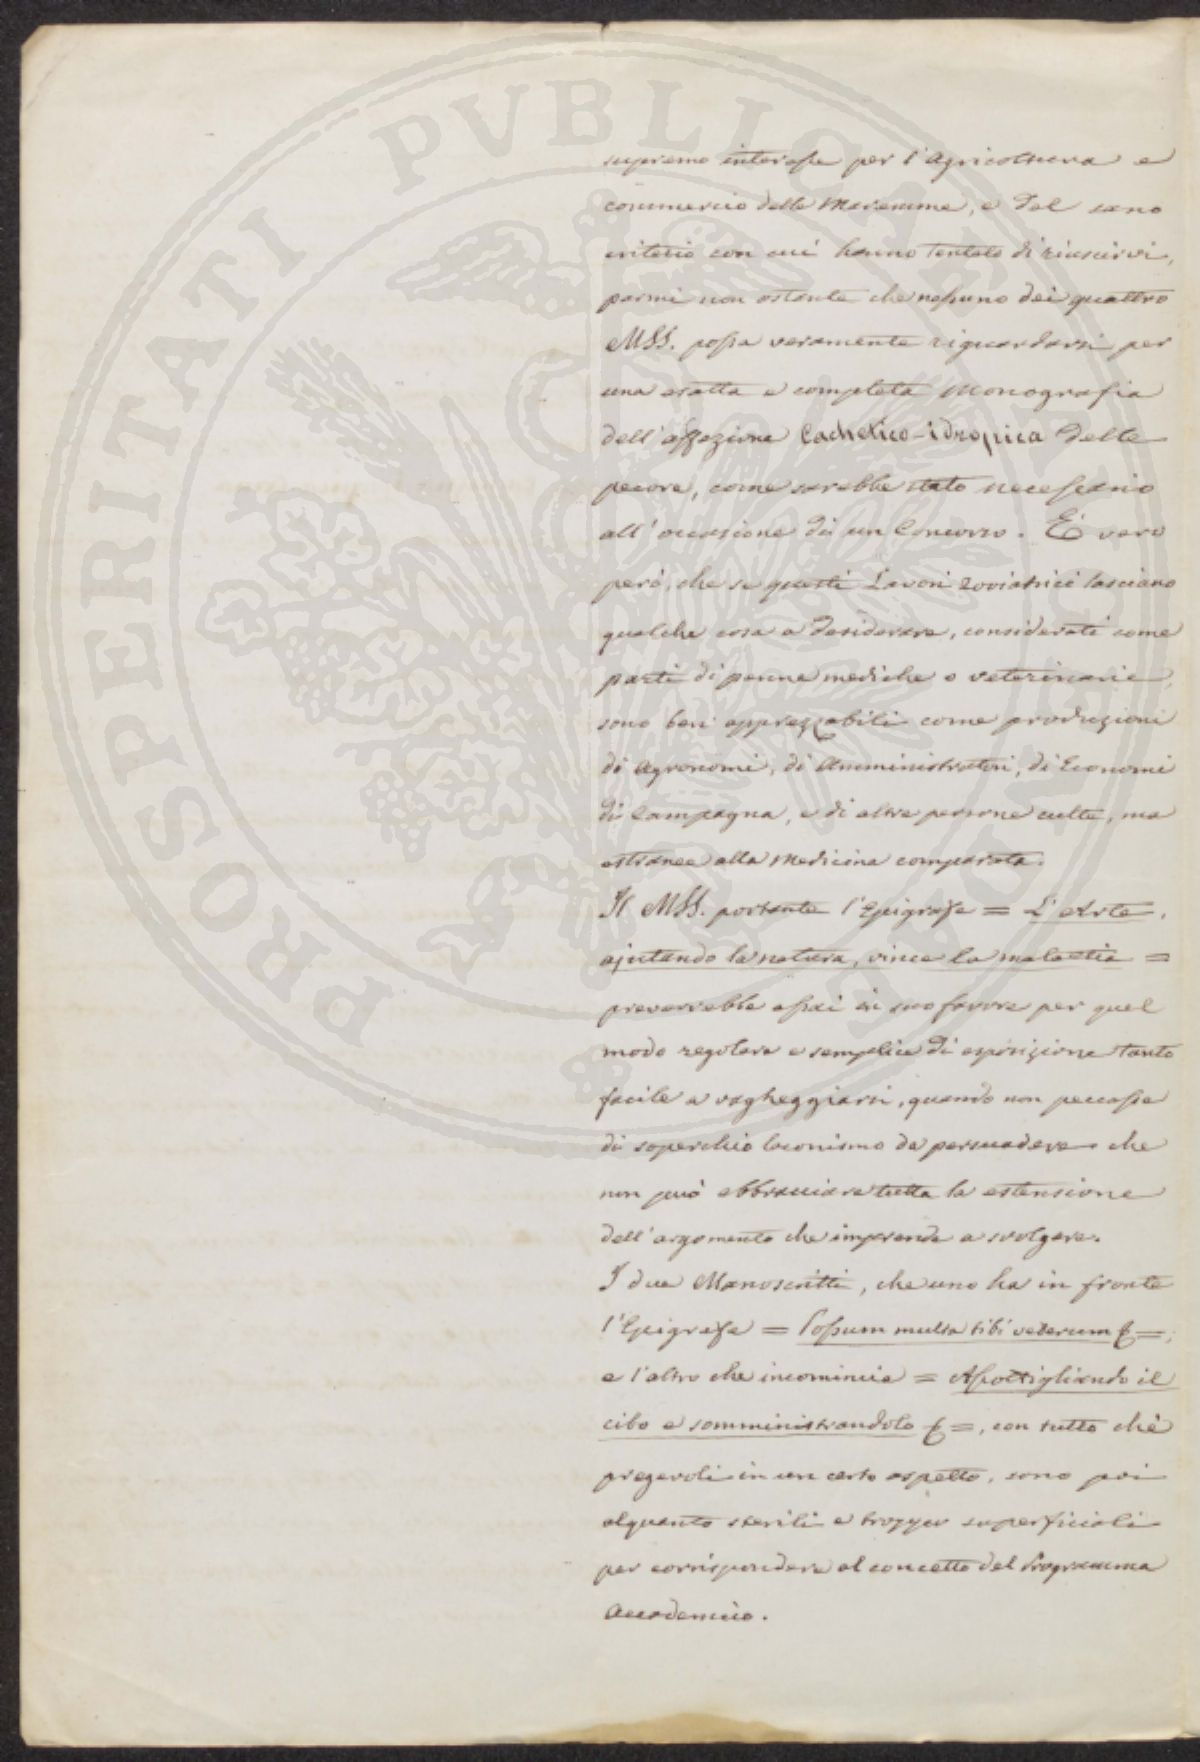 supremo interesse per l'Agricoltura e
commercio delle Maremme, e del sano
criterio con cui hanno tentato di riuscirvi,
parmi non ostante che nessuno dei quattro
MSS. possa veramente riguardarsi per
una esatta e completa Monografia
dell'affezione Cachetico-idropica delle
pecore, come sarebbe stato necessario
all'occasione di un Concorso. È vero
però, che se questi Lavori zooiatrici lasciano
qualche cosa a desiderare, considerati come
parti di penne mediche o veterinarie,
sono ben apprezzabili come produzioni
di Agronomi, di Amministratori, di Economi
di Campagna, e di altre persone culte, ma
estranee alla Medicina comparata.
Il MSS. portante l'Epigrafe = L'Arte,
ajutando la natura, vince la malattia =
prevarrebbe assai in suo favore per quel
modo regolare e semplice di esposizione tanto
facile a vagheggiarsi, quando non peccasse
di soperchio laconismo da persuadere che
non può abbracciare tutta la estensione
dell'argomento che imprende a svolgere.
I due Manoscritti, che uno ha in fronte
l'Epigrafe = Possum multa tibi veterum &=,
e l'altro che incomincia = Assottigliando il
cibo e somministrandolo &=, con tutto che
pregevoli in un certo aspetto, sono poi
alquanto sterili e troppo superficiali
per corrispondere al concetto del Programma
Accademico.
PROSPERITATI PUBLICAE